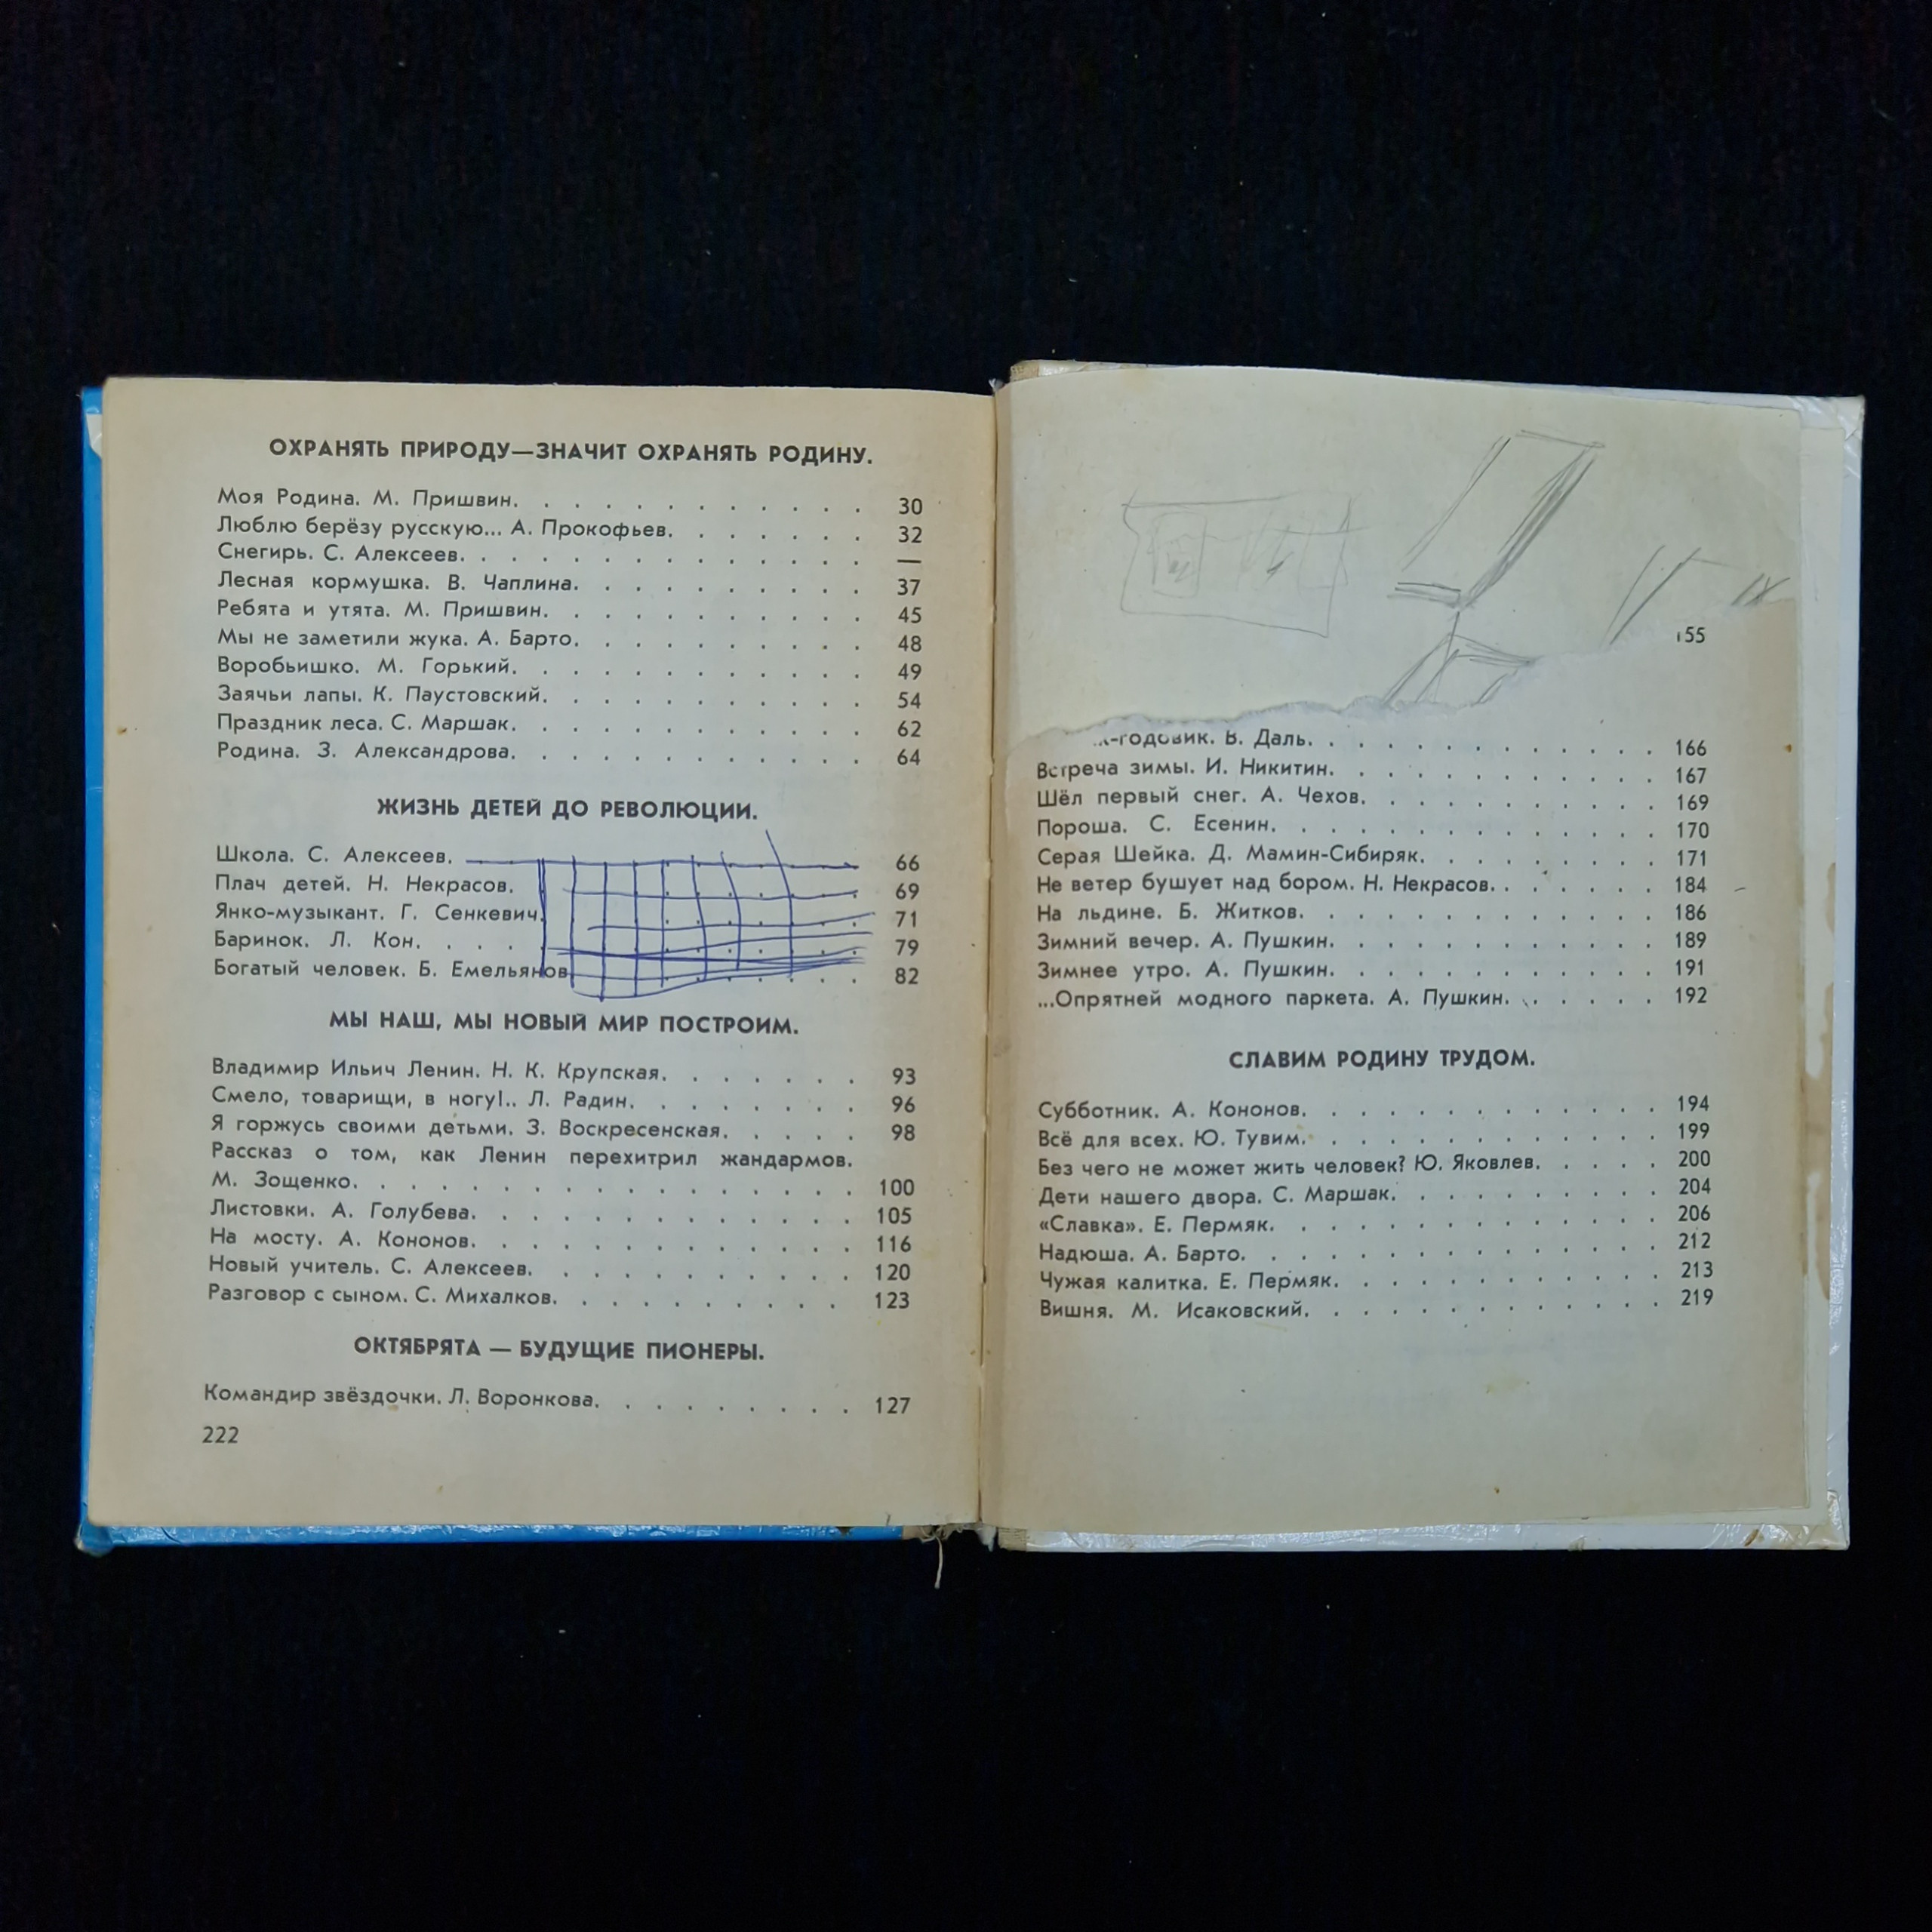 ОХРАНЯТЬ ПРИРОДУ—ЗНАЧИТ ОХРАНЯТЬ РОДИНУ.
Моя Родина. М. Пришвин. . . . . . . . . . . . . 30
Люблю берёзу русскую... А. Прокофьев. . . . . . . . 32
Снегирь. С. Алексеев. . . . . . . . . . . . . . . —
Лесная кормушка. В. Чаплина. . . . . . . . . . . 37
Ребята и утята. М. Пришвин. . . . . . . . . . . . 45
Мы не заметили жука. А. Барто. . . . . . . . . . . 48
Воробьишко. М. Горький. . . . . . . . . . . . . 49
Заячьи лапы. К. Паустовский. . . . . . . . . . . . 54
Праздник леса. С. Маршак. . . . . . . . . . . . . 62
Родина. З. Александрова. . . . . . . . . . . . . 64
ЖИЗНЬ ДЕТЕЙ ДО РЕВОЛЮЦИИ.
Школа. С. Алексеев. 66
Плач детей. Н. Некрасов. 69
Янко-музыкант. Г. Сенкевич. 71
Баринок. Л. Кон. . . . . 79
Богатый человек. Б. Емельянов. 82
МЫ НАШ, МЫ НОВЫЙ МИР ПОСТРОИМ.
Владимир Ильич Ленин. Н. К. Крупская. . . . . . . . 93
Смело, товарищи, в ногу!.. Л. Радин. . . . . . . . . 96
Я горжусь своими детьми. З. Воскресенская. . . . . . 98
Рассказ о том, как Ленин перехитрил жандармов.
М. Зощенко. . . . . . . . . . . . . . . . . . 100
Листовки. А. Голубева. . . . . . . . . . . . . . 105
На мосту. А. Кононов. . . . . . . . . . . . . . 116
Новый учитель. С. Алексеев. . . . . . . . . . . . 120
Разговор с сыном. С. Михалков. . . . . . . . . . . 123
ОКТЯБРЯТА — БУДУЩИЕ ПИОНЕРЫ.
Командир звёздочки. Л. Воронкова. . . . . . . . . . 127
222
155
-годовик. В. Даль. . . . . . . . . . . . . . 166
Встреча зимы. И. Никитин. . . . . . . . . . . . . 167
Шёл первый снег. А. Чехов. . . . . . . . . . . . 169
Пороша. С. Есенин. . . . . . . . . . . . . . . 170
Серая Шейка. Д. Мамин-Сибиряк. . . . . . . . . . 171
Не ветер бушует над бором. Н. Некрасов. . . . . . . 184
На льдине. Б. Житков. . . . . . . . . . . . . . 186
Зимний вечер. А. Пушкин. . . . . . . . . . . . . 189
Зимнее утро. А. Пушкин. . . . . . . . . . . . . 191
...Опрятней модного паркета. А. Пушкин. . . . . . . 192
СЛАВИМ РОДИНУ ТРУДОМ.
Субботник. А. Кононов. . . . . . . . . . . . . . 194
Всё для всех. Ю. Тувим. . . . . . . . . . . . . . 199
Без чего не может жить человек? Ю. Яковлев. . . . . 200
Дети нашего двора. С. Маршак. . . . . . . . . . . 204
«Славка». Е. Пермяк. . . . . . . . . . . . . . . 206
Надюша. А. Барто. . . . . . . . . . . . . . . . 212
Чужая калитка. Е. Пермяк. . . . . . . . . . . . . 213
Вишня. М. Исаковский. . . . . . . . . . . . . . 219